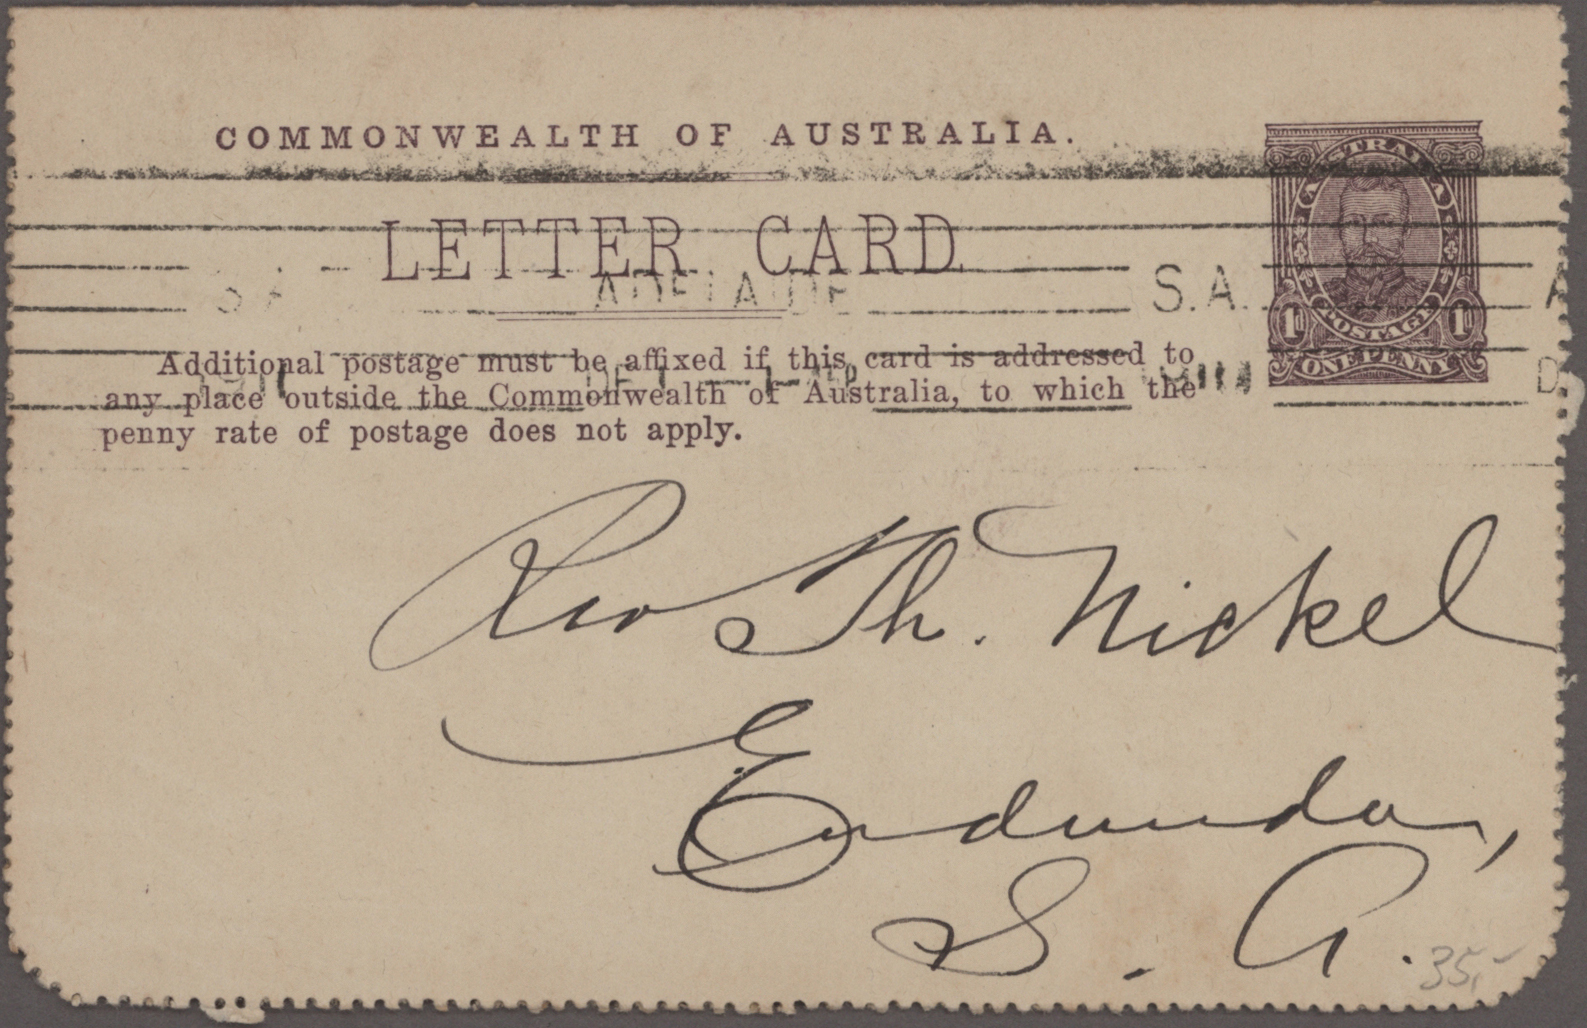 COMMONWEALTH OF AUSTRALIA.
LETTER CARD
AUSTRALIA
1D POSTAGE 1D
ONE PENNY
ADELAIDE S.A.
Additional postage must be affixed if this card is addressed to
any place outside the Commonwealth of Australia, to which the
penny rate of postage does not apply.
Rev Th. Nickel
Eudunda,
S. A.
35,-